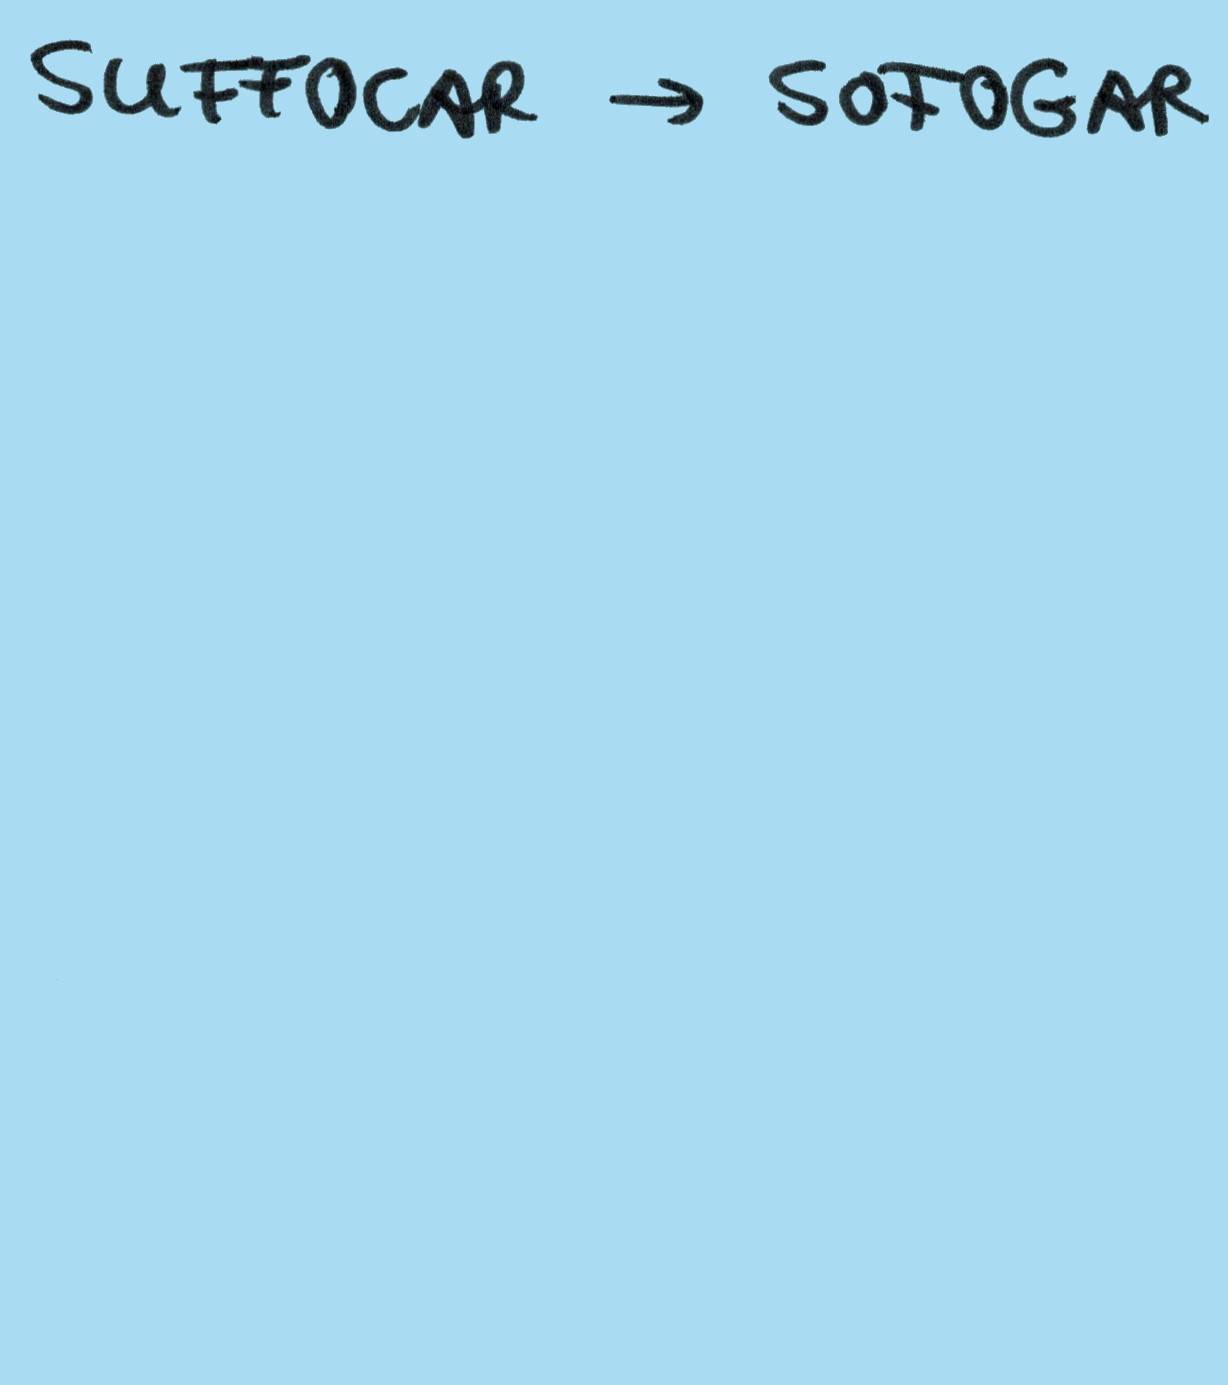 SUFFOCAR → SOFOGAR